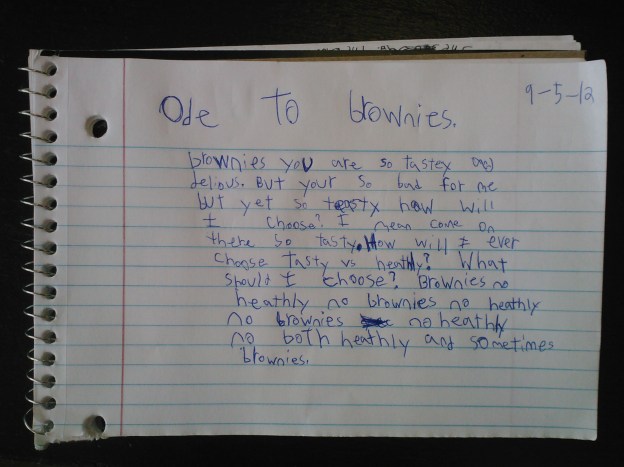 Ode To brownies.
9-5-12
brownies you are so tastey and
delious. But your so bad for me
but yet so teasty how will
I choose? I mean come on
there so tasty. How will I ever
choose tasty vs heathly? What
should I choose? Brownies no
heathly no brownies no heathly
no brownies no heathly
no both heathly and sometimes
brownies.